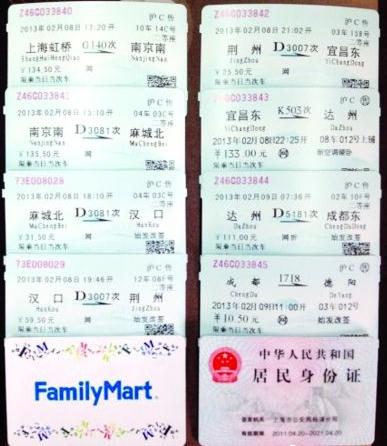 Z46C033840 沪C售
2013年02月08日 13:20开 10车14C号
二等座
上海虹桥 G140次 南京南
ShangHaiHongQiao NanJingNan
￥134.50元 网
限乘当日当次车
Z46C033841 沪C售
2013年02月08日 15:10开 04车03C号
二等座
南京南 D3081次 麻城北
NanJingNan MaChengBei
￥135.50元 网
限乘当日当次车
73E008028 沪C售
2013年02月08日 18:10开 04车03C号
二等座
麻城北 D3081次 汉口
MaChengBei HanKou
￥31.50元 网 始发改签
限乘当日当次车
73E008029 沪C售
2013年02月08日 19:46开 12车08F号
二等座
汉口 D3007次 荆州
HanKou JingZhou
￥59.50元 网 始发改签
限乘当日当次车
FamilyMart
Z46C033842 沪C售
2013年02月08日 21:02开 03车15B号
二等座
荆州 D3007次 宜昌东
JingZhou YiChangDong
￥25.50元 网
限乘当日当次车
Z46C033843 沪C售
宜昌东 K503次 达州
YiChangDong DaZhou
2013年02月08日22:25开 08车012号上铺
￥133.00元 网 新空调硬卧
限乘当日当次车
Z46C033844 沪C售
2013年02月09日 07:36开 02车10F号
二等座
达州 D5181次 成都东
DaZhou ChengDuDong
￥111.00元 网折 始发改签
限乘当日当次车
Z46C033845 沪C售
成都 1718次 德阳
ChengDu DeYang
2013年02月09日11:00开 03车012号
￥10.50元 网 始发改签
限乘当日当次车
中华人民共和国
居民身份证
签发机关 上海市公安局杨浦分局
有效期限 2011.04.20-2021.04.20